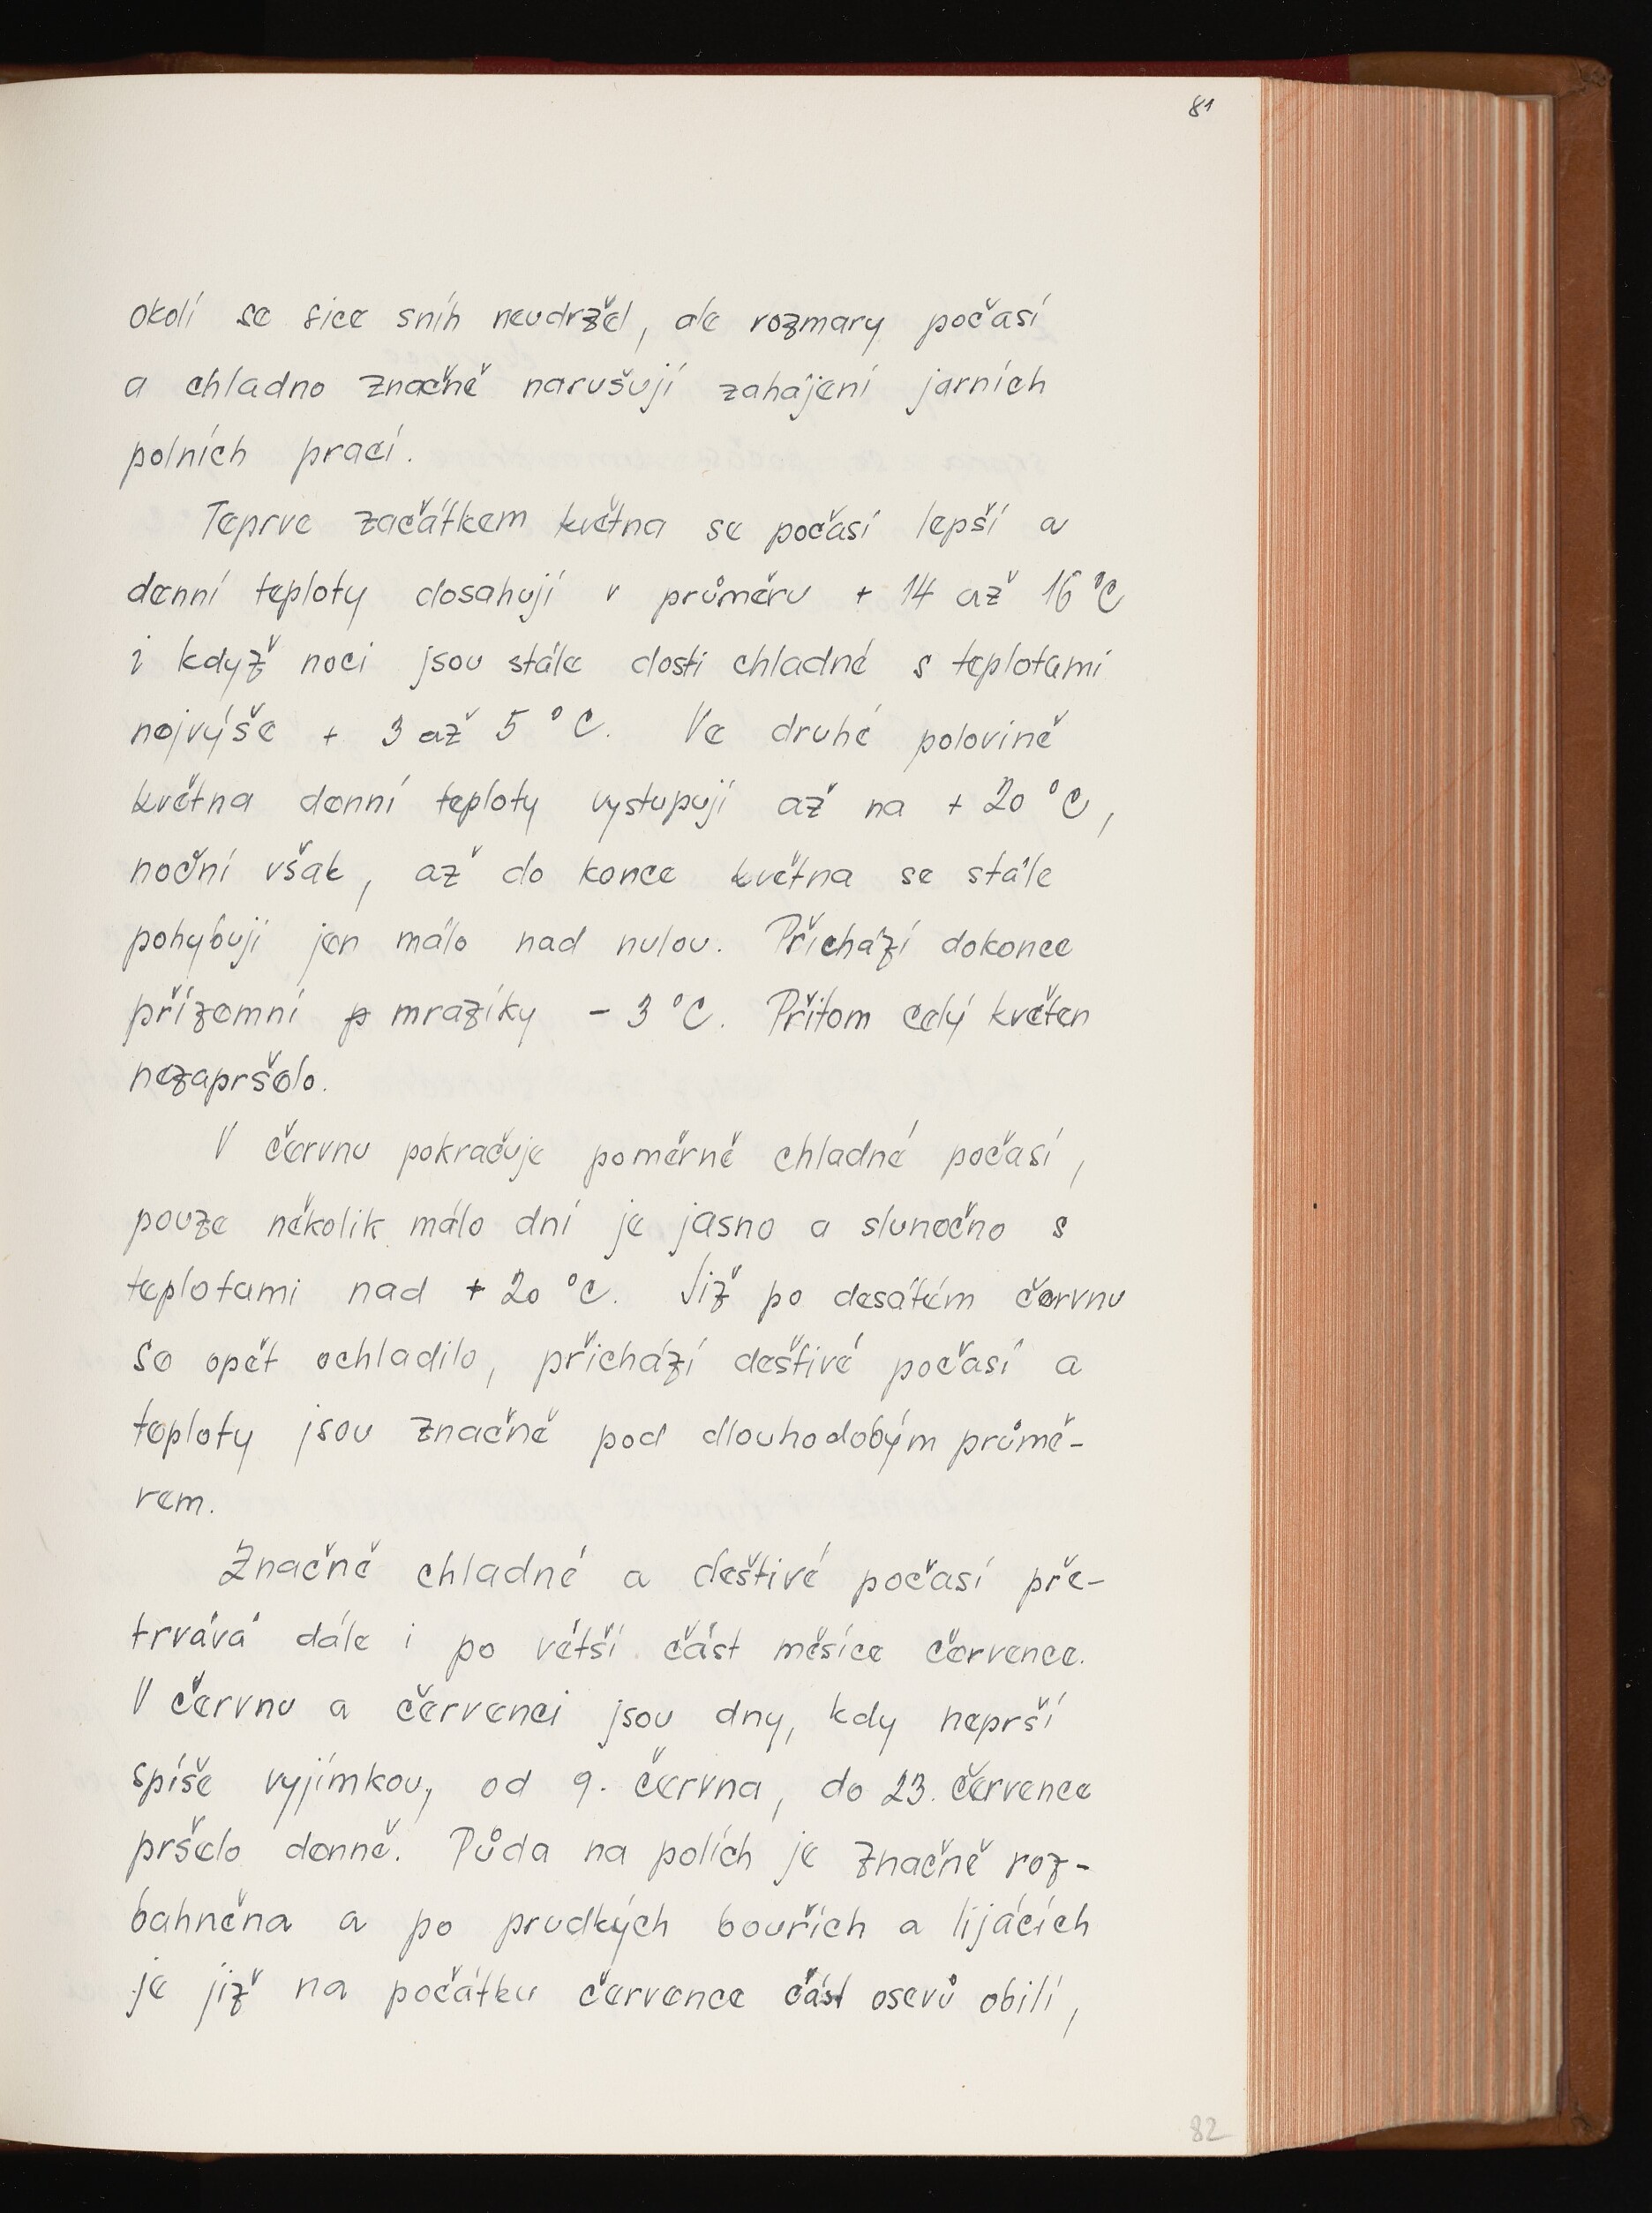 81
okolí se sice sníh neudržel, ale rozmary počasí
a chladno značně narušují zahájení jarních
polních prací.
Teprve začátkem května se počasí lepší a
denní teploty dosahují v průměru + 14 až 16 °C
i když noci jsou stále dosti chladné s teplotami
nejvýše + 3 až 5 °C. Ve druhé polovině
května denní teploty vystupují až na + 20 °C,
noční však, až do konce května se stále
pohybují jen málo nad nulou. Přichází dokonce
přízemní p mrazíky - 3 °C. Přitom celý květen
nezapršelo.
V červnu pokračuje poměrně chladné počasí,
pouze několik málo dní je jasno a slunečno s
teplotami nad + 20 °C. Již po desátém červnu
se opět ochladilo, přichází deštivé počasí a
teploty jsou značně pod dlouhodobým průmě-
rem.
Značně chladné a deštivé počasí pře-
trvává dále i po větší část měsíce července.
V červnu a červenci jsou dny, kdy neprší
spíše vyjímkou, od 9. června, do 23. července
pršelo denně. Půda na polích je značně roz-
bahněna a po prudkých bouřích a lijácích
je již na počátku července část osevů obilí,
82